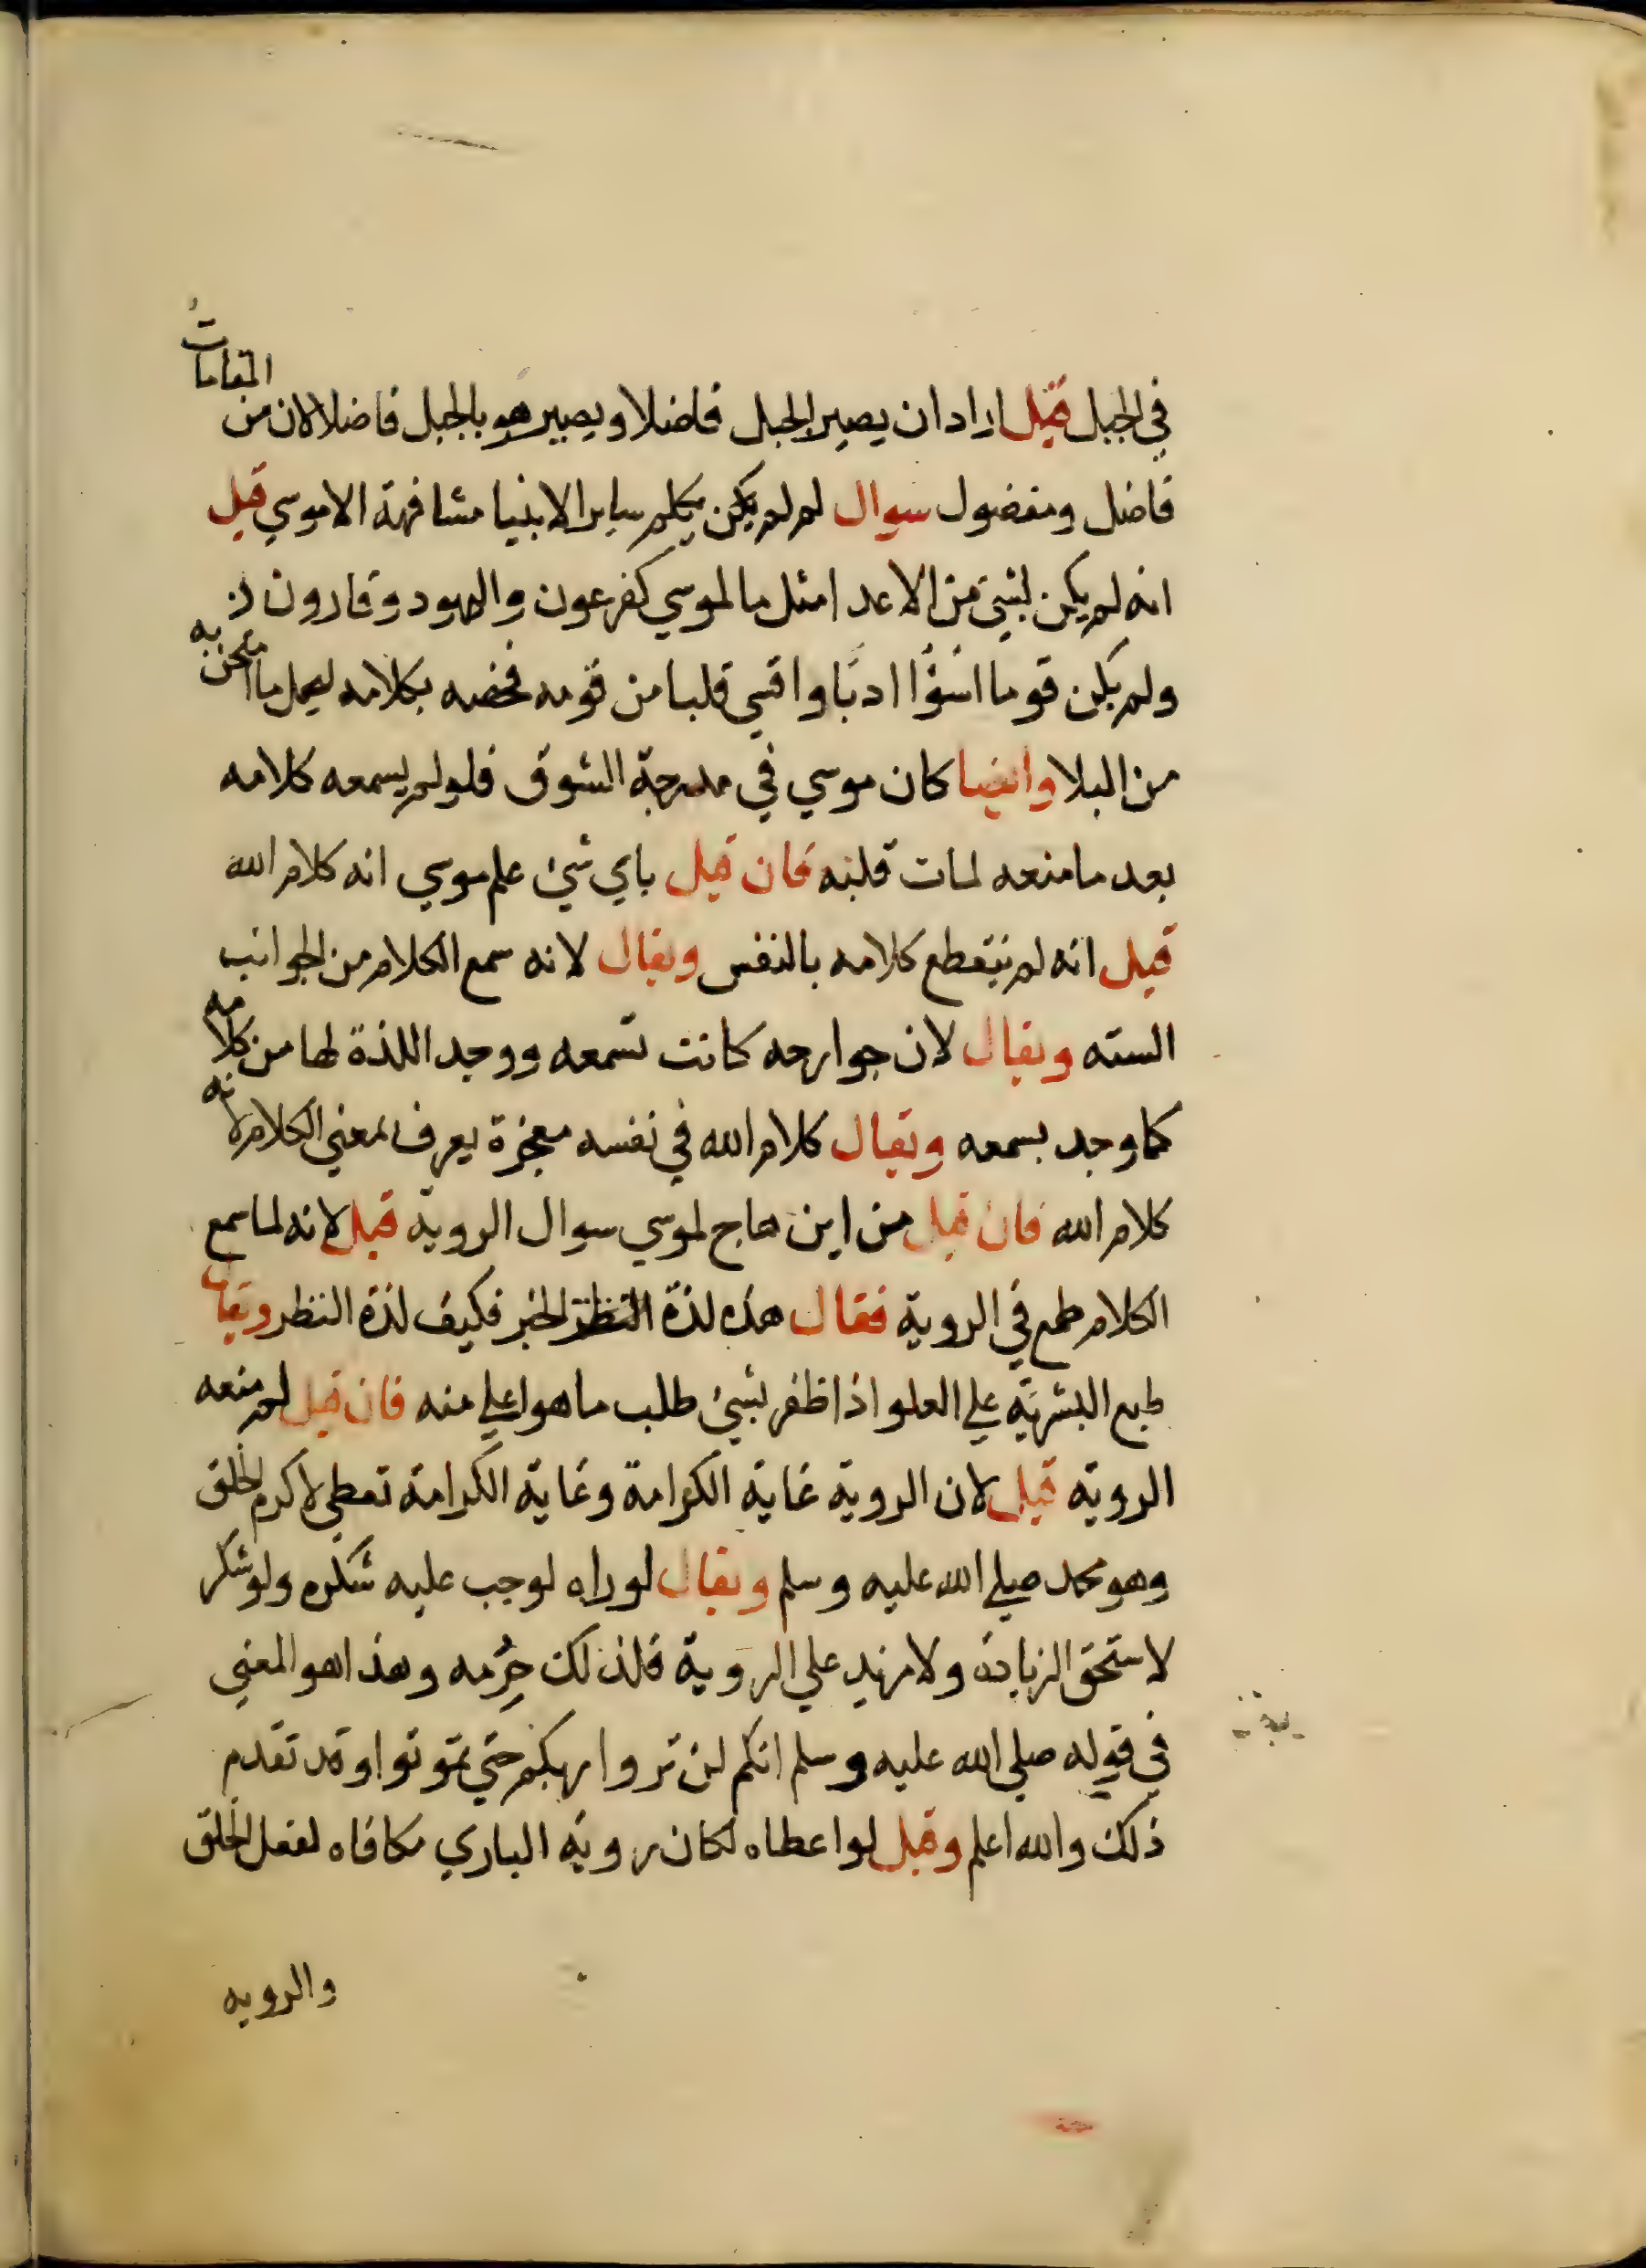 في الجبل قيل اراد ان يصير الجبل فاضلا ويصير هو بالجبل فاضلا لان من المقامات
فاضل ومفضول سوال لم لم يكن يكلم ساير الانبيا مشافهة الا موسي قيل
انه لم يكن لنبي من الاعدا مثل ما لموسي كفرعون واليهود وقارون
ولم يكن قوما اسوٌا ادبًا واقسي قلبا من قومه فخصه بكلامه ليحمل ما امتحن به
من البلا وايضا كان موسي في مدرجة الشوق فلو لم يسمعه كلامه
بعد ما منعه لمات قلبه فان قيل باي شيٍ علم موسي انه كلام الله
قيل انه لم ينقطع كلامه بالنفس ويقال لانه سمع الكلام من الجوانب
السته ويقال لان جوارحه كانت تسمعه ووجد اللذة لها من كلامه
كما وجد بسمعه ويقال كلام الله في نفسه معجزة يعرف لمعني الكلام لانه
كلام الله فان قيل من اين هاج لموسي سوال الروية قيل لانه لما سمع
الكلام طمع في الروية فقال هذه لذة النظر الخبر فكيف لذة النظر ويقال
طبع البشريّة علي العلو اذا ظفر بشيٍ طلب ما هو اعلي منه فان قيل لم منعه
الروية قيل لان الروية غاية الكرامة وغاية الكرامة تعطي لاكرم الخلق
وهو محمد صلي الله عليه وسلم ويقال لو راه لوجب عليه شكره ولو شكر
لاستحق الزيادة ولا مزيد علي الروية فلذلك حرُمه وهذا هو المعني
في قوله صلي الله عليه وسلم انكم لن تروا ربكم حتي تموتوا وقد تقدم
ذلك والله اعلم وقيل لو اعطاه لكان روية الباري مكافاه لفعل الخلق
والرويه